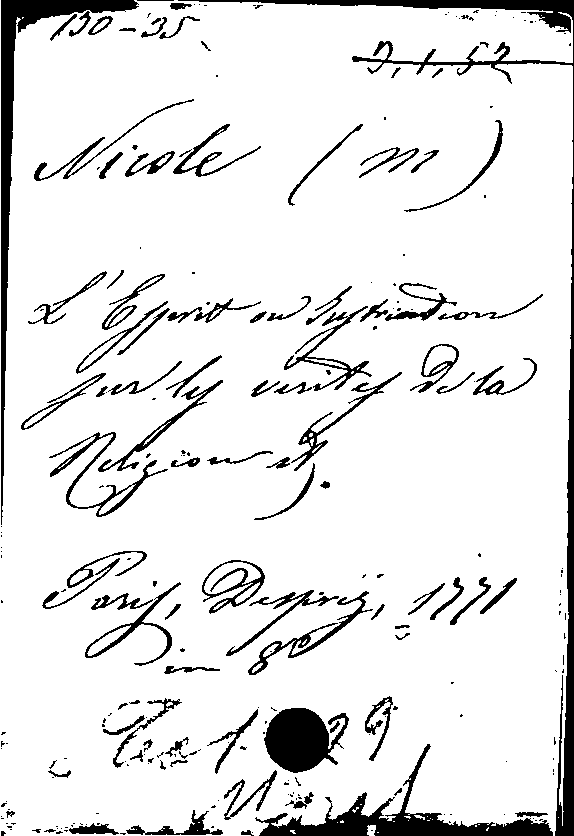 130-35
D, 1, 52
Nicole (M)
L'Esprit ou Instruction
sur les verites de la
Religion et.
Paris, Desprez, 1771
in 8º
29